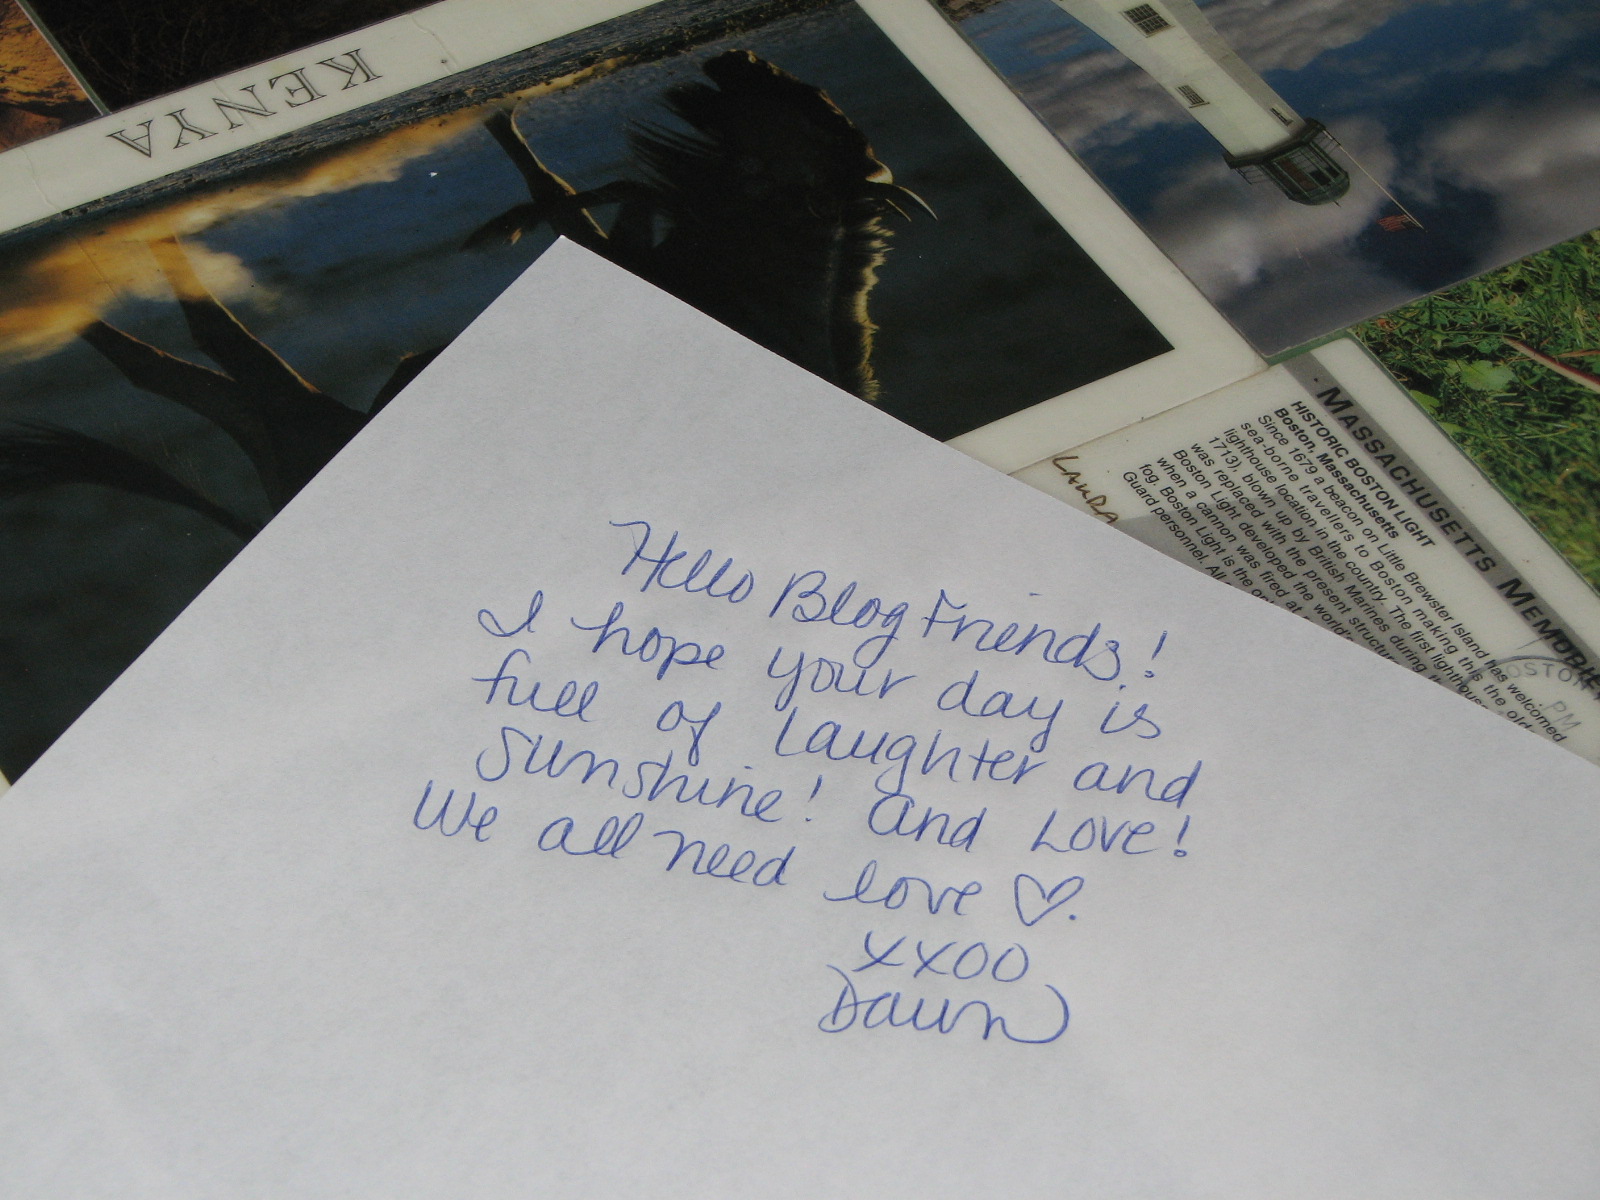 KENYA
LAURA
MASSACHUSETTS
HISTORIC BOSTON LIGHT
Boston, Massachusetts
Since 1679 a beacon on Little Brewster Island has welcomed
sea-borne travellers to Boston making this the
lighthouse location in the country. The first
1713), blown up by British Marines during
was replaced with the present
Boston Light developed the world's
when a cannon was fired at
fog. Boston Light is the
Guard personnel. All
PM
Hello Blog Friends!
I hope your day is
full of Laughter and
Sunshine! And Love!
We all need love ♡.
xxoo
Dawn